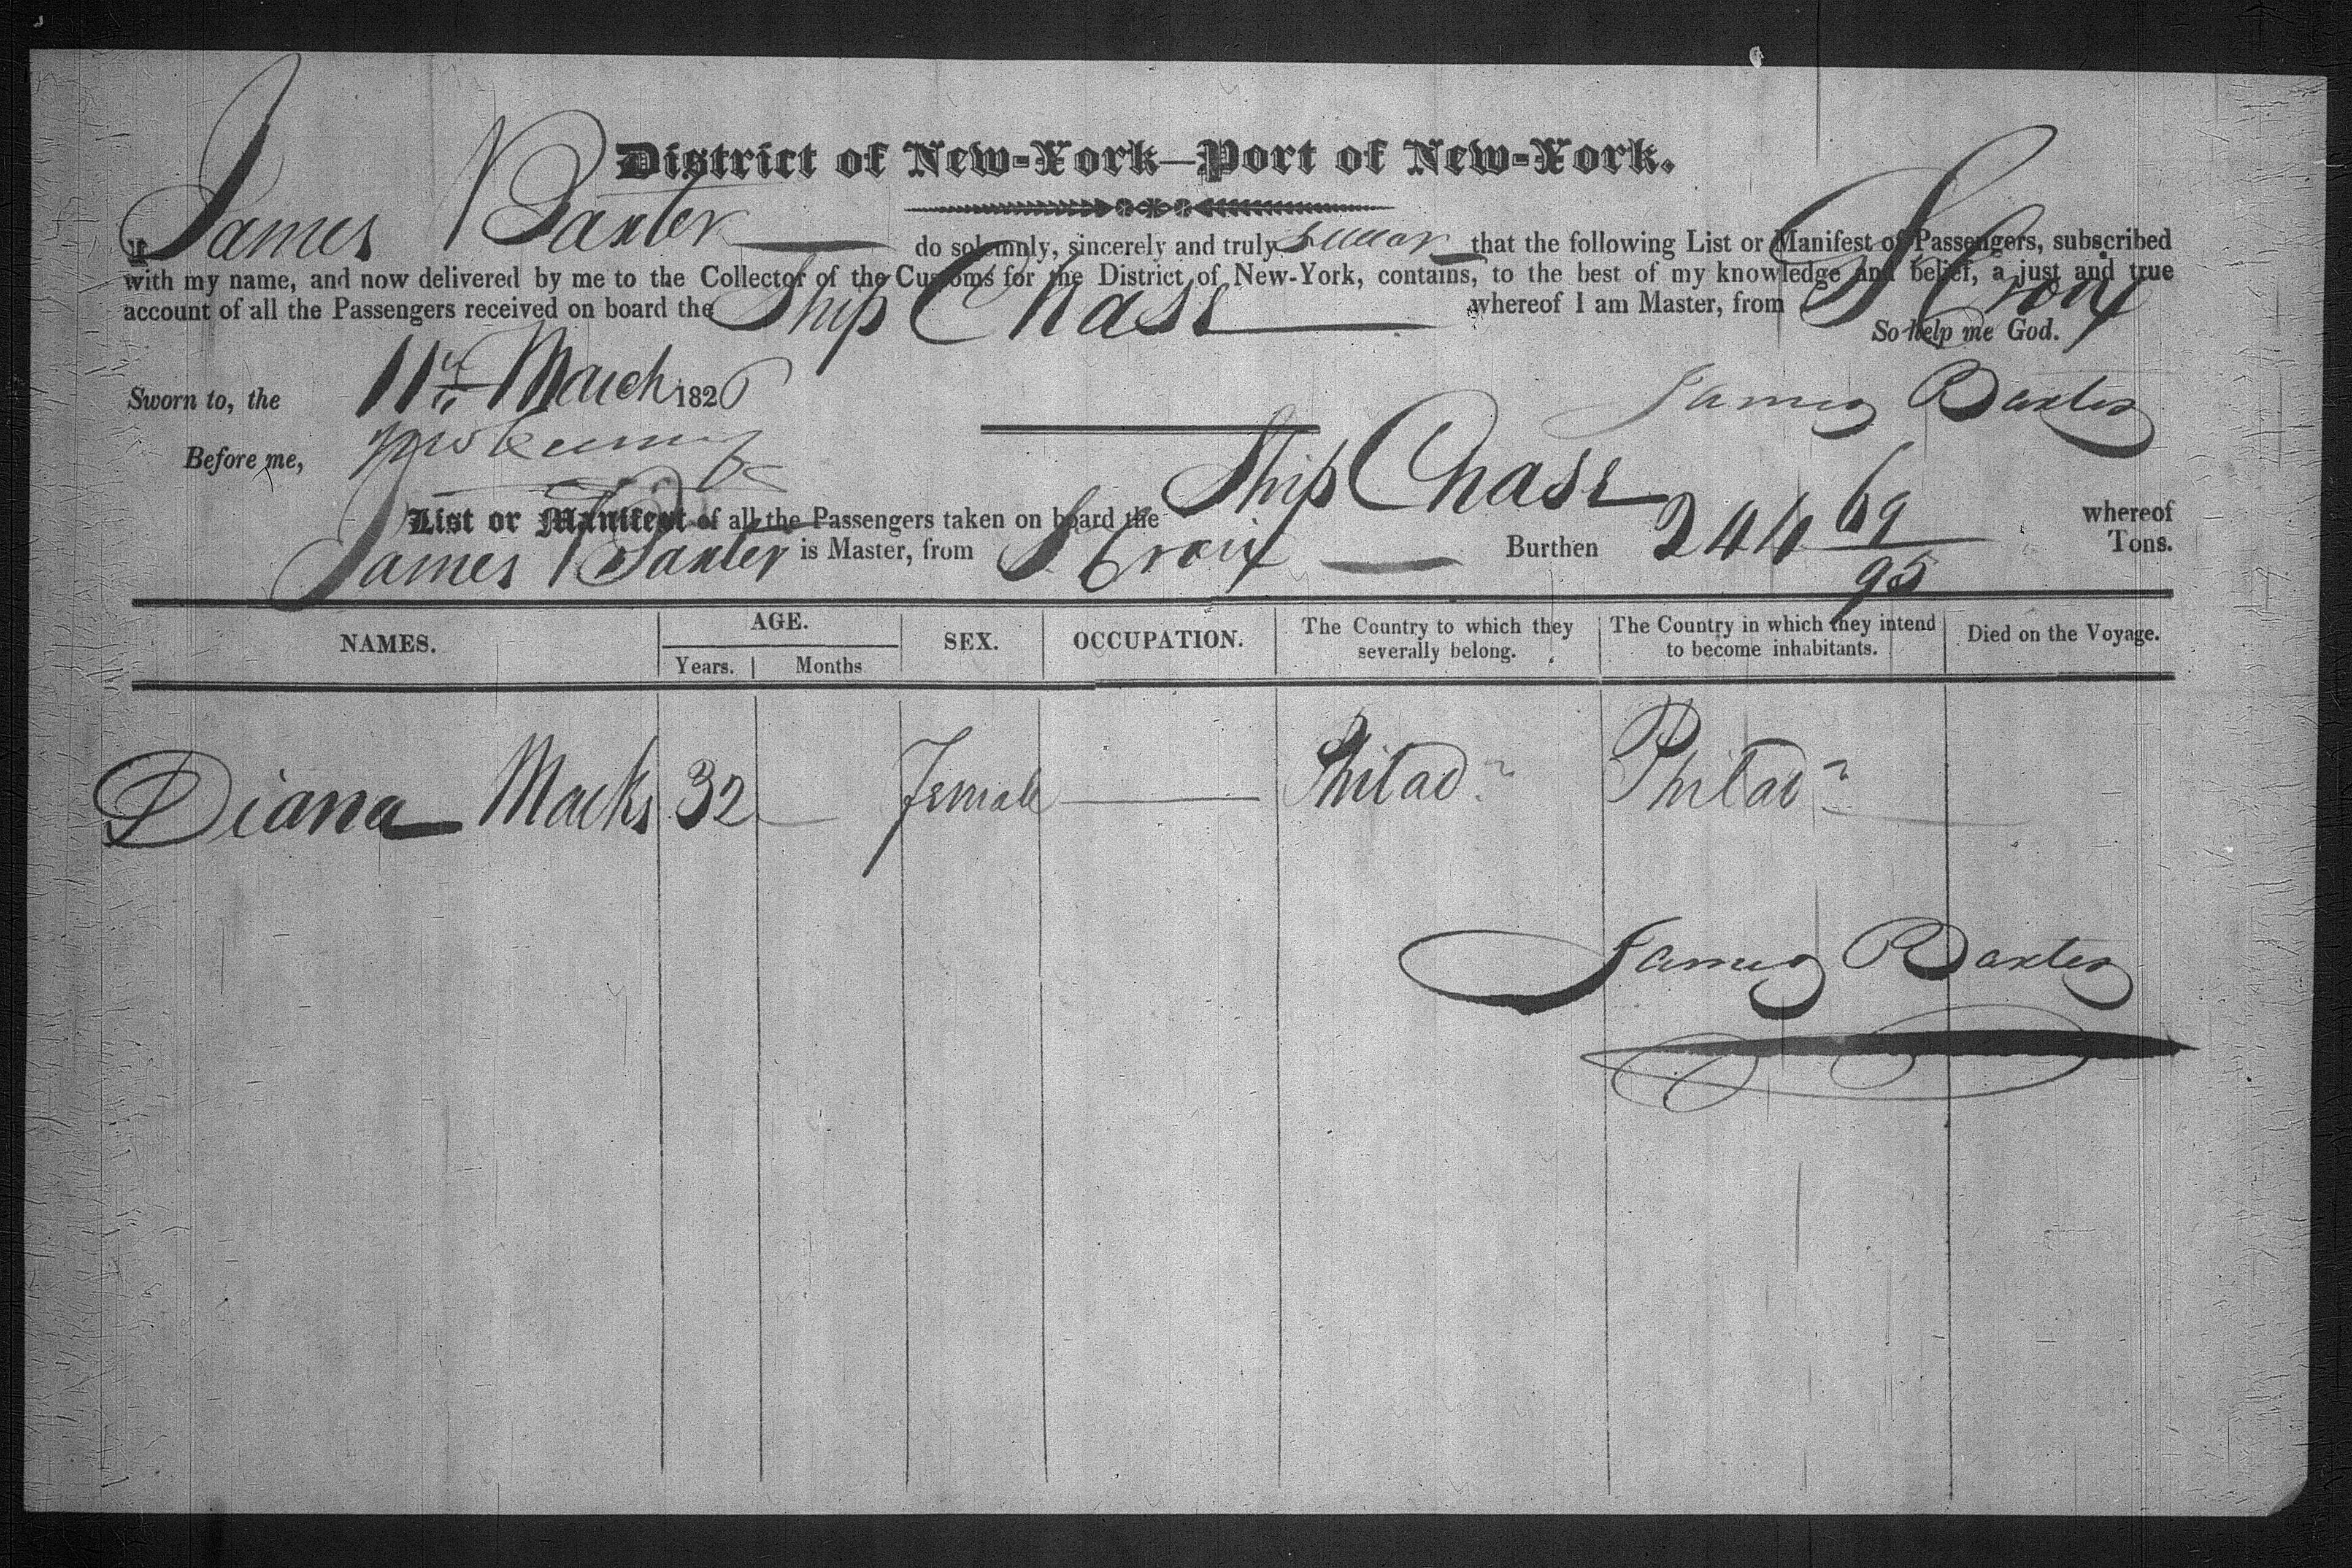 District of New-York—Port of New-York.
I, James Baxter do solemnly, sincerely and truly swear that the following List or Manifest of Passengers, subscribed
with my name, and now delivered by me to the Collector of the Customs for the District of New-York, contains, to the best of my knowledge and belief, a just and true
account of all the Passengers received on board the Ship Chase whereof I am Master, from St Croix
So help me God.
Sworn to, the 11th March 1826
James Baxter
Before me,
List or Manifest of all the Passengers taken on board the Ship Chase whereof
James Baxter is Master, from St Croix Burthen 244 69/95 Tons.
NAMES. AGE. SEX. OCCUPATION. The Country to which they severally belong. The Country in which they intend to become inhabitants. Died on the Voyage.
Years. Months
Diana Macks 32 Female Philada Philada
James Baxter